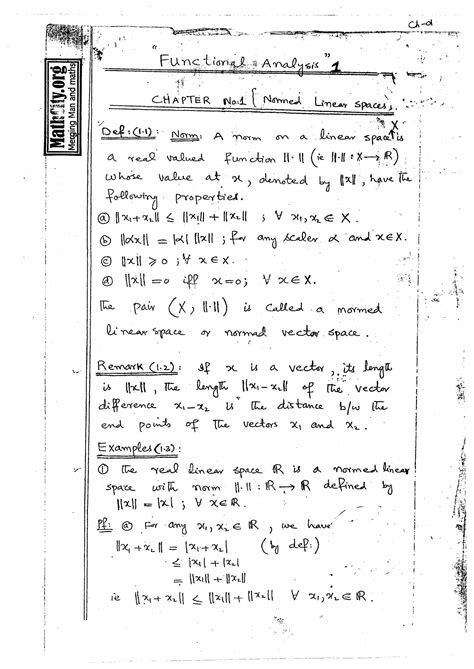 Ch-d
"Functional Analysis" 1
MathCity.org
Merging Man and maths
CHAPTER No:1 [ Normed Linear spaces,
Def:(1.1): Norm: A norm on a linear space X is
a real valued function ‖·‖ (ie ‖·‖ : X → ℝ)
whose value at x, denoted by ‖x‖, have the
following properties.
ⓐ ‖x₁+x₂‖ ≤ ‖x₁‖ + ‖x₂‖ ; ∀ x₁,x₂ ∈ X.
ⓑ ‖αx‖ = |α| ‖x‖ ; for any scaler α and x∈X.
ⓒ ‖x‖ ⩾ 0 ; ∀ x∈X.
ⓓ ‖x‖ = 0 iff x=0; ∀ x∈X.
The pair (X, ‖·‖) is called a normed
linear space or normed vector space.
Remark (1.2): If x is a vector, its length
is ‖x‖, the length ‖x₁-x₂‖ of the vector
difference x₁-x₂ is the distance b/w the
end points of the vectors x₁ and x₂.
Examples (1.3):
① The real linear space ℝ is a normed linear
space with norm ‖·‖ : ℝ → ℝ defined by
‖x‖ = |x| ; ∀ x∈ℝ.
Pf: ⓐ For any x₁,x₂ ∈ ℝ, we have
‖x₁+x₂‖ = |x₁+x₂| (by def:)
≤ |x₁| + |x₂|
= ‖x₁‖ + ‖x₂‖
ie ‖x₁+x₂‖ ≤ ‖x₁‖ + ‖x₂‖ ∀ x₁,x₂ ∈ ℝ.